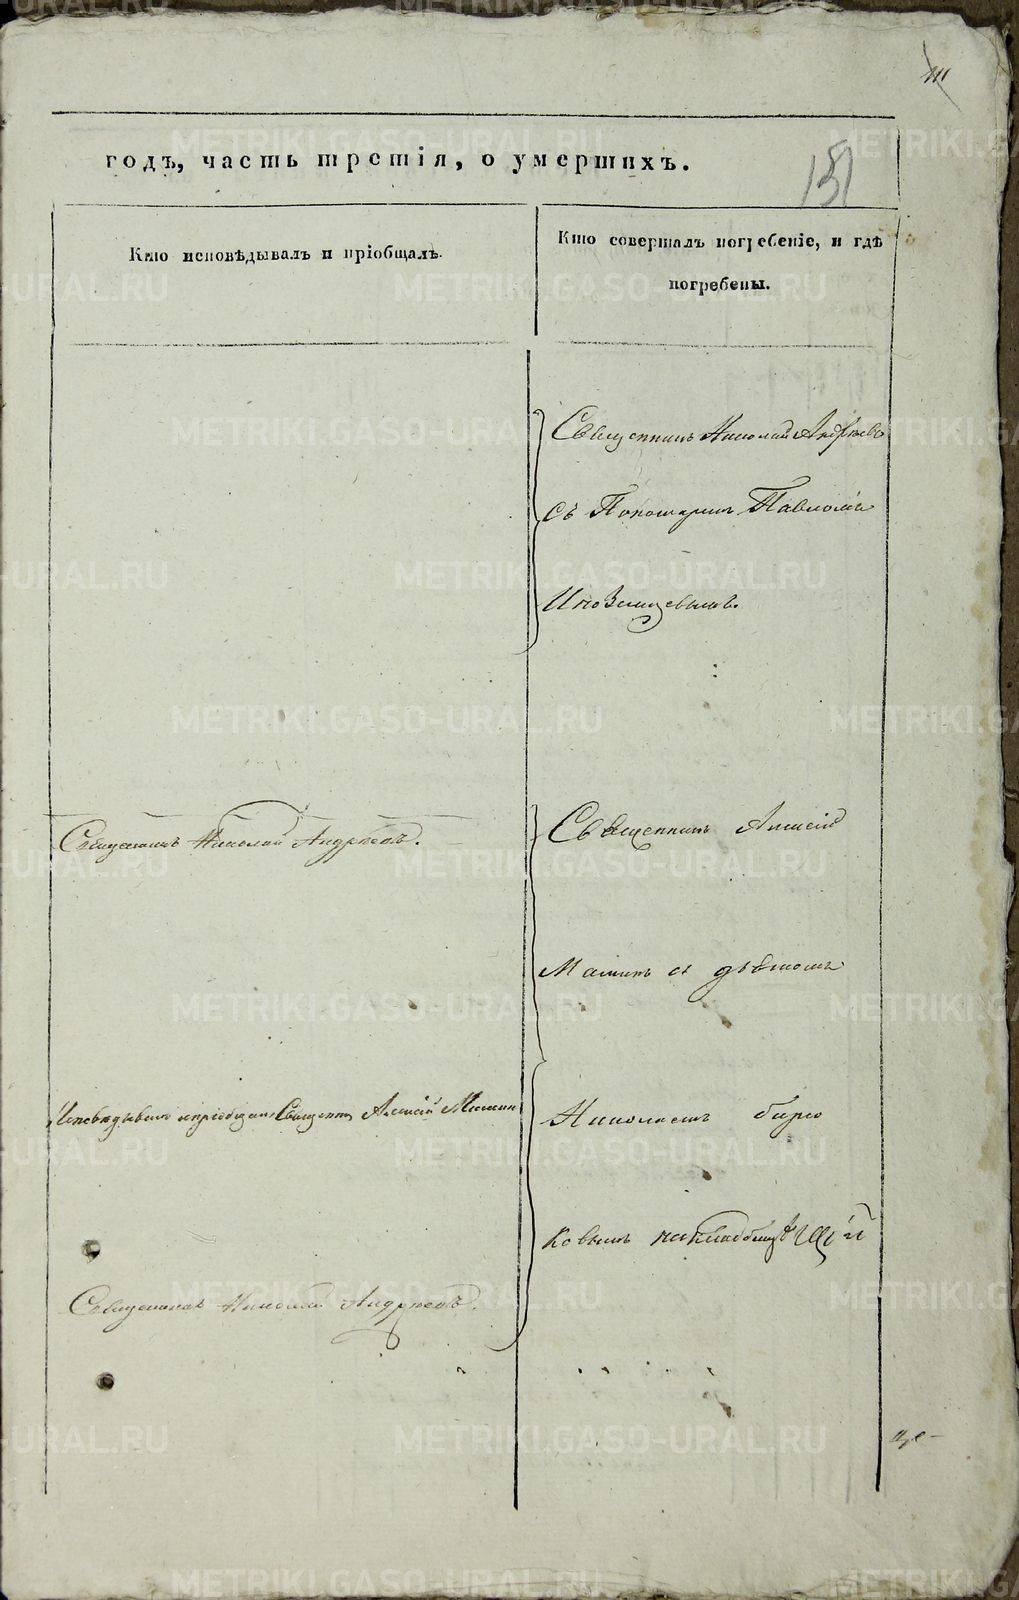 151
годъ, часть третія, о умершихъ.
Кто исповѣдывалъ и пріобщалъ.
Кто совершалъ погребеніе, и гдѣ
погребены.
Священникъ Николай Андреевъ
съ Пономаремъ Павломъ
Иноземцевымъ.
Священникъ Николай Андреевъ.
Священникъ Алексій
Маминъ съ дьячкомъ
Исповѣдывалъ и пріобщалъ Священникъ Алексій Маминъ
Николаемъ Бирю
ковымъ на кладбищѣ
Священникъ Николай Андреевъ.
METRIKI.GASO-URAL.RU